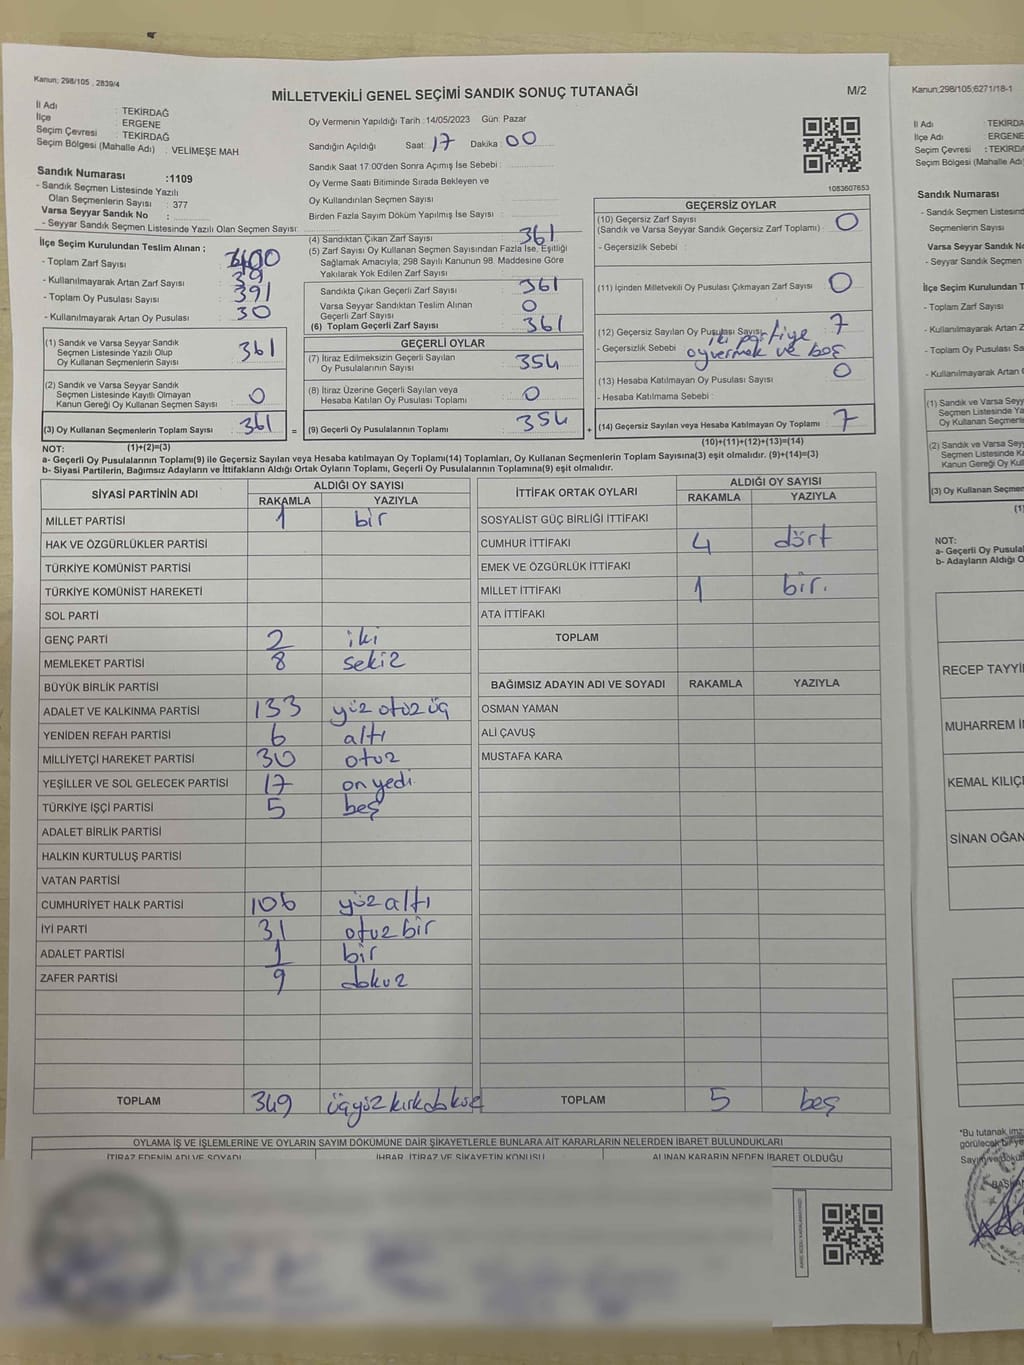 Kanun; 298/105 , 2839/4
MİLLETVEKİLİ GENEL SEÇİMİ SANDIK SONUÇ TUTANAĞI
M/2
İl Adı : TEKİRDAĞ
İlçe : ERGENE
Seçim Çevresi : TEKİRDAĞ
Seçim Bölgesi (Mahalle Adı) : VELİMEŞE MAH
Sandık Numarası :1109
- Sandık Seçmen Listesinde Yazılı
Olan Seçmenlerin Sayısı : 377
Varsa Seyyar Sandık No :
- Seyyar Sandık Seçmen Listesinde Yazılı Olan Seçmen Sayısı:
Oy Vermenin Yapıldığı Tarih :14/05/2023 Gün: Pazar
Sandığın Açıldığı Saat: 17 Dakika: 00
Sandık Saat 17:00'den Sonra Açımış İse Sebebi :
Oy Verme Saati Bitiminde Sırada Bekleyen ve
Oy Kullandırılan Seçmen Sayısı :
Birden Fazla Sayım Döküm Yapılmış İse Sayısı :
1083607653
İlçe Seçim Kurulundan Teslim Alınan ;
- Toplam Zarf Sayısı : 400
- Kullanılmayarak Artan Zarf Sayısı : 39
- Toplam Oy Pusulası Sayısı : 391
- Kullanılmayarak Artan Oy Pusulası : 30
(1) Sandık ve Varsa Seyyar Sandık
Seçmen Listesinde Yazılı Olup
Oy Kullanan Seçmenlerin Sayısı : 361
(2) Sandık ve Varsa Seyyar Sandık
Seçmen Listesinde Kayıtlı Olmayan
Kanun Gereği Oy Kullanan Seçmen Sayısı : 0
(3) Oy Kullanan Seçmenlerin Toplam Sayısı : 361
(4) Sandıktan Çıkan Zarf Sayısı : 361
(5) Zarf Sayısı Oy Kullanan Seçmen Sayısından Fazla İse, Eşitliği
Sağlamak Amacıyla; 298 Sayılı Kanunun 98. Maddesine Göre
Yakılarak Yok Edilen Zarf Sayısı :
Sandıkta Çıkan Geçerli Zarf Sayısı : 361
Varsa Seyyar Sandıktan Teslim Alınan
Geçerli Zarf Sayısı : 0
(6) Toplam Geçerli Zarf Sayısı : 361
GEÇERLİ OYLAR
(7) İtiraz Edilmeksizin Geçerli Sayılan
Oy Pusulalarının Sayısı : 354
(8) İtiraz Üzerine Geçerli Sayılan veya
Hesaba Katılan Oy Pusulası Toplamı : 0
= (9) Geçerli Oy Pusulalarının Toplamı : 354 +
GEÇERSİZ OYLAR
(10) Geçersiz Zarf Sayısı
(Sandık ve Varsa Seyyar Sandık Geçersiz Zarf Toplamı) : 0
- Geçersizlik Sebebi :
(11) İçinden Milletvekili Oy Pusulası Çıkmayan Zarf Sayısı : 0
(12) Geçersiz Sayılan Oy Pusulası Sayısı : 7
- Geçersizlik Sebebi : iki partiye
oyvermek ve boş
(13) Hesaba Katılmayan Oy Pusulası Sayısı : 0
- Hesaba Katılmama Sebebi :
(14) Geçersiz Sayılan veya Hesaba Katılmayan Oy Toplamı : 7
NOT: (1)+(2)=(3)
(10)+(11)+(12)+(13)=(14)
a- Geçerli Oy Pusulalarının Toplamı(9) ile Geçersiz Sayılan veya Hesaba katılmayan Oy Toplamı(14) Toplamları, Oy Kullanan Seçmenlerin Toplam Sayısına(3) eşit olmalıdır. (9)+(14)=(3)
b- Siyasi Partilerin, Bağımsız Adayların ve İttifakların Aldığı Ortak Oyların Toplamı, Geçerli Oy Pusulalarının Toplamına(9) eşit olmalıdır.
SİYASİ PARTİNİN ADI ALDIĞI OY SAYISI
RAKAMLA YAZIYLA
MİLLET PARTİSİ 1 bir
HAK VE ÖZGÜRLÜKLER PARTİSİ
TÜRKİYE KOMÜNİST PARTİSİ
TÜRKİYE KOMÜNİST HAREKETİ
SOL PARTİ
GENÇ PARTİ 2 iki
MEMLEKET PARTİSİ 8 sekiz
BÜYÜK BİRLİK PARTİSİ
ADALET VE KALKINMA PARTİSİ 133 yüz otuz üç
YENİDEN REFAH PARTİSİ 6 altı
MİLLİYETÇİ HAREKET PARTİSİ 30 otuz
YEŞİLLER VE SOL GELECEK PARTİSİ 17 on yedi
TÜRKİYE İŞÇİ PARTİSİ 5 beş
ADALET BİRLİK PARTİSİ
HALKIN KURTULUŞ PARTİSİ
VATAN PARTİSİ
CUMHURİYET HALK PARTİSİ 106 yüz altı
İYİ PARTİ 31 otuz bir
ADALET PARTİSİ 1 bir
ZAFER PARTİSİ 9 dokuz
TOPLAM 349 üçyüz kırkdokuz
İTTİFAK ORTAK OYLARI ALDIĞI OY SAYISI
RAKAMLA YAZIYLA
SOSYALİST GÜÇ BİRLİĞİ İTTİFAKI
CUMHUR İTTİFAKI 4 dört
EMEK VE ÖZGÜRLÜK İTTİFAKI
MİLLET İTTİFAKI 1 bir.
ATA İTTİFAKI
TOPLAM
BAĞIMSIZ ADAYIN ADI VE SOYADI RAKAMLA YAZIYLA
OSMAN YAMAN
ALİ ÇAVUŞ
MUSTAFA KARA
TOPLAM 5 beş
OYLAMA İŞ VE İŞLEMLERİNE VE OYLARIN SAYIM DÖKÜMÜNE DAİR ŞİKAYETLERLE BUNLARA AİT KARARLARIN NELERDEN İBARET BULUNDUKLARI
İTİRAZ EDENİN ADI VE SOYADI İHBAR, İTİRAZ VE ŞİKAYETİN KONUSU ALINAN KARARIN NEDEN İBARET OLDUĞU
Kanun;298/105;6271/18-1
İl Adı : TEKİRDA
İlçe Adı : ERGENE
Seçim Çevresi : TEKİRDA
Seçim Bölgesi (Mahalle Adı)
Sandık Numarası
- Sandık Seçmen Listesind
Seçmenlerin Sayısı
Varsa Seyyar Sandık No
- Seyyar Sandık Seçmen L
İlçe Seçim Kurulundan T
- Toplam Zarf Sayısı
- Kullanılmayarak Artan Z
- Toplam Oy Pusulası Sayıs
- Kullanılmayarak Artan
(1) Sandık ve Varsa Seyy
Seçmen Listesinde
Oy Kullanan Seçmenle
(2) Sandık ve Varsa Seyya
Seçmen Listesinde Ka
Kanun Gereği Oy Kull
(3) Oy Kullanan Seçmen
(1)
NOT:
a- Geçerli Oy Pusulal
b- Adayların Aldığı O
RECEP TAYYİ
MUHARREM İ
KEMAL KILIÇ
SİNAN OĞAN
*Bu tutanak imz